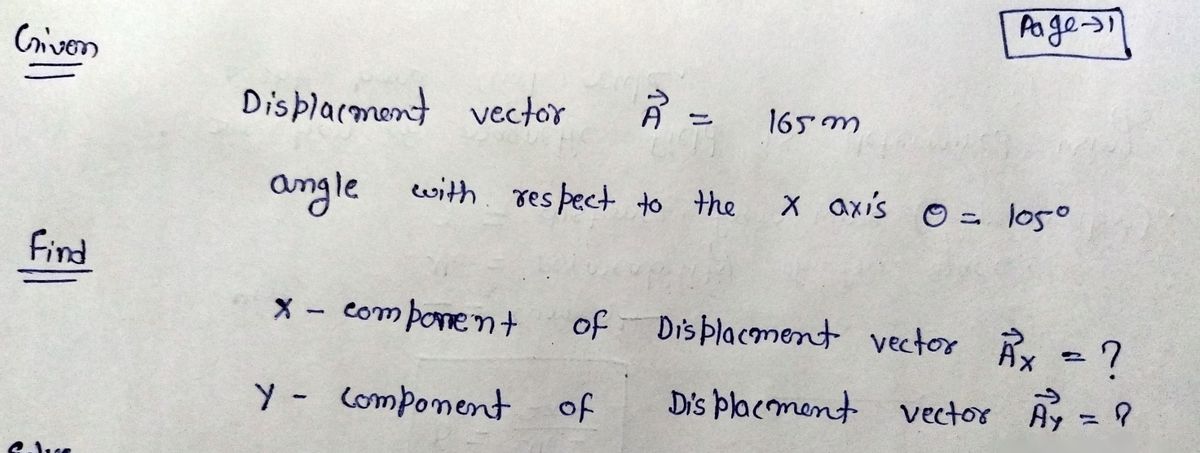 Given
Page→1
Displacment vector A⃗ = 165 m
angle with respect to the x axis θ = 105°
Find
X - component of Displacment vector A⃗x = ?
Y - component of Displacment vector A⃗y = ?